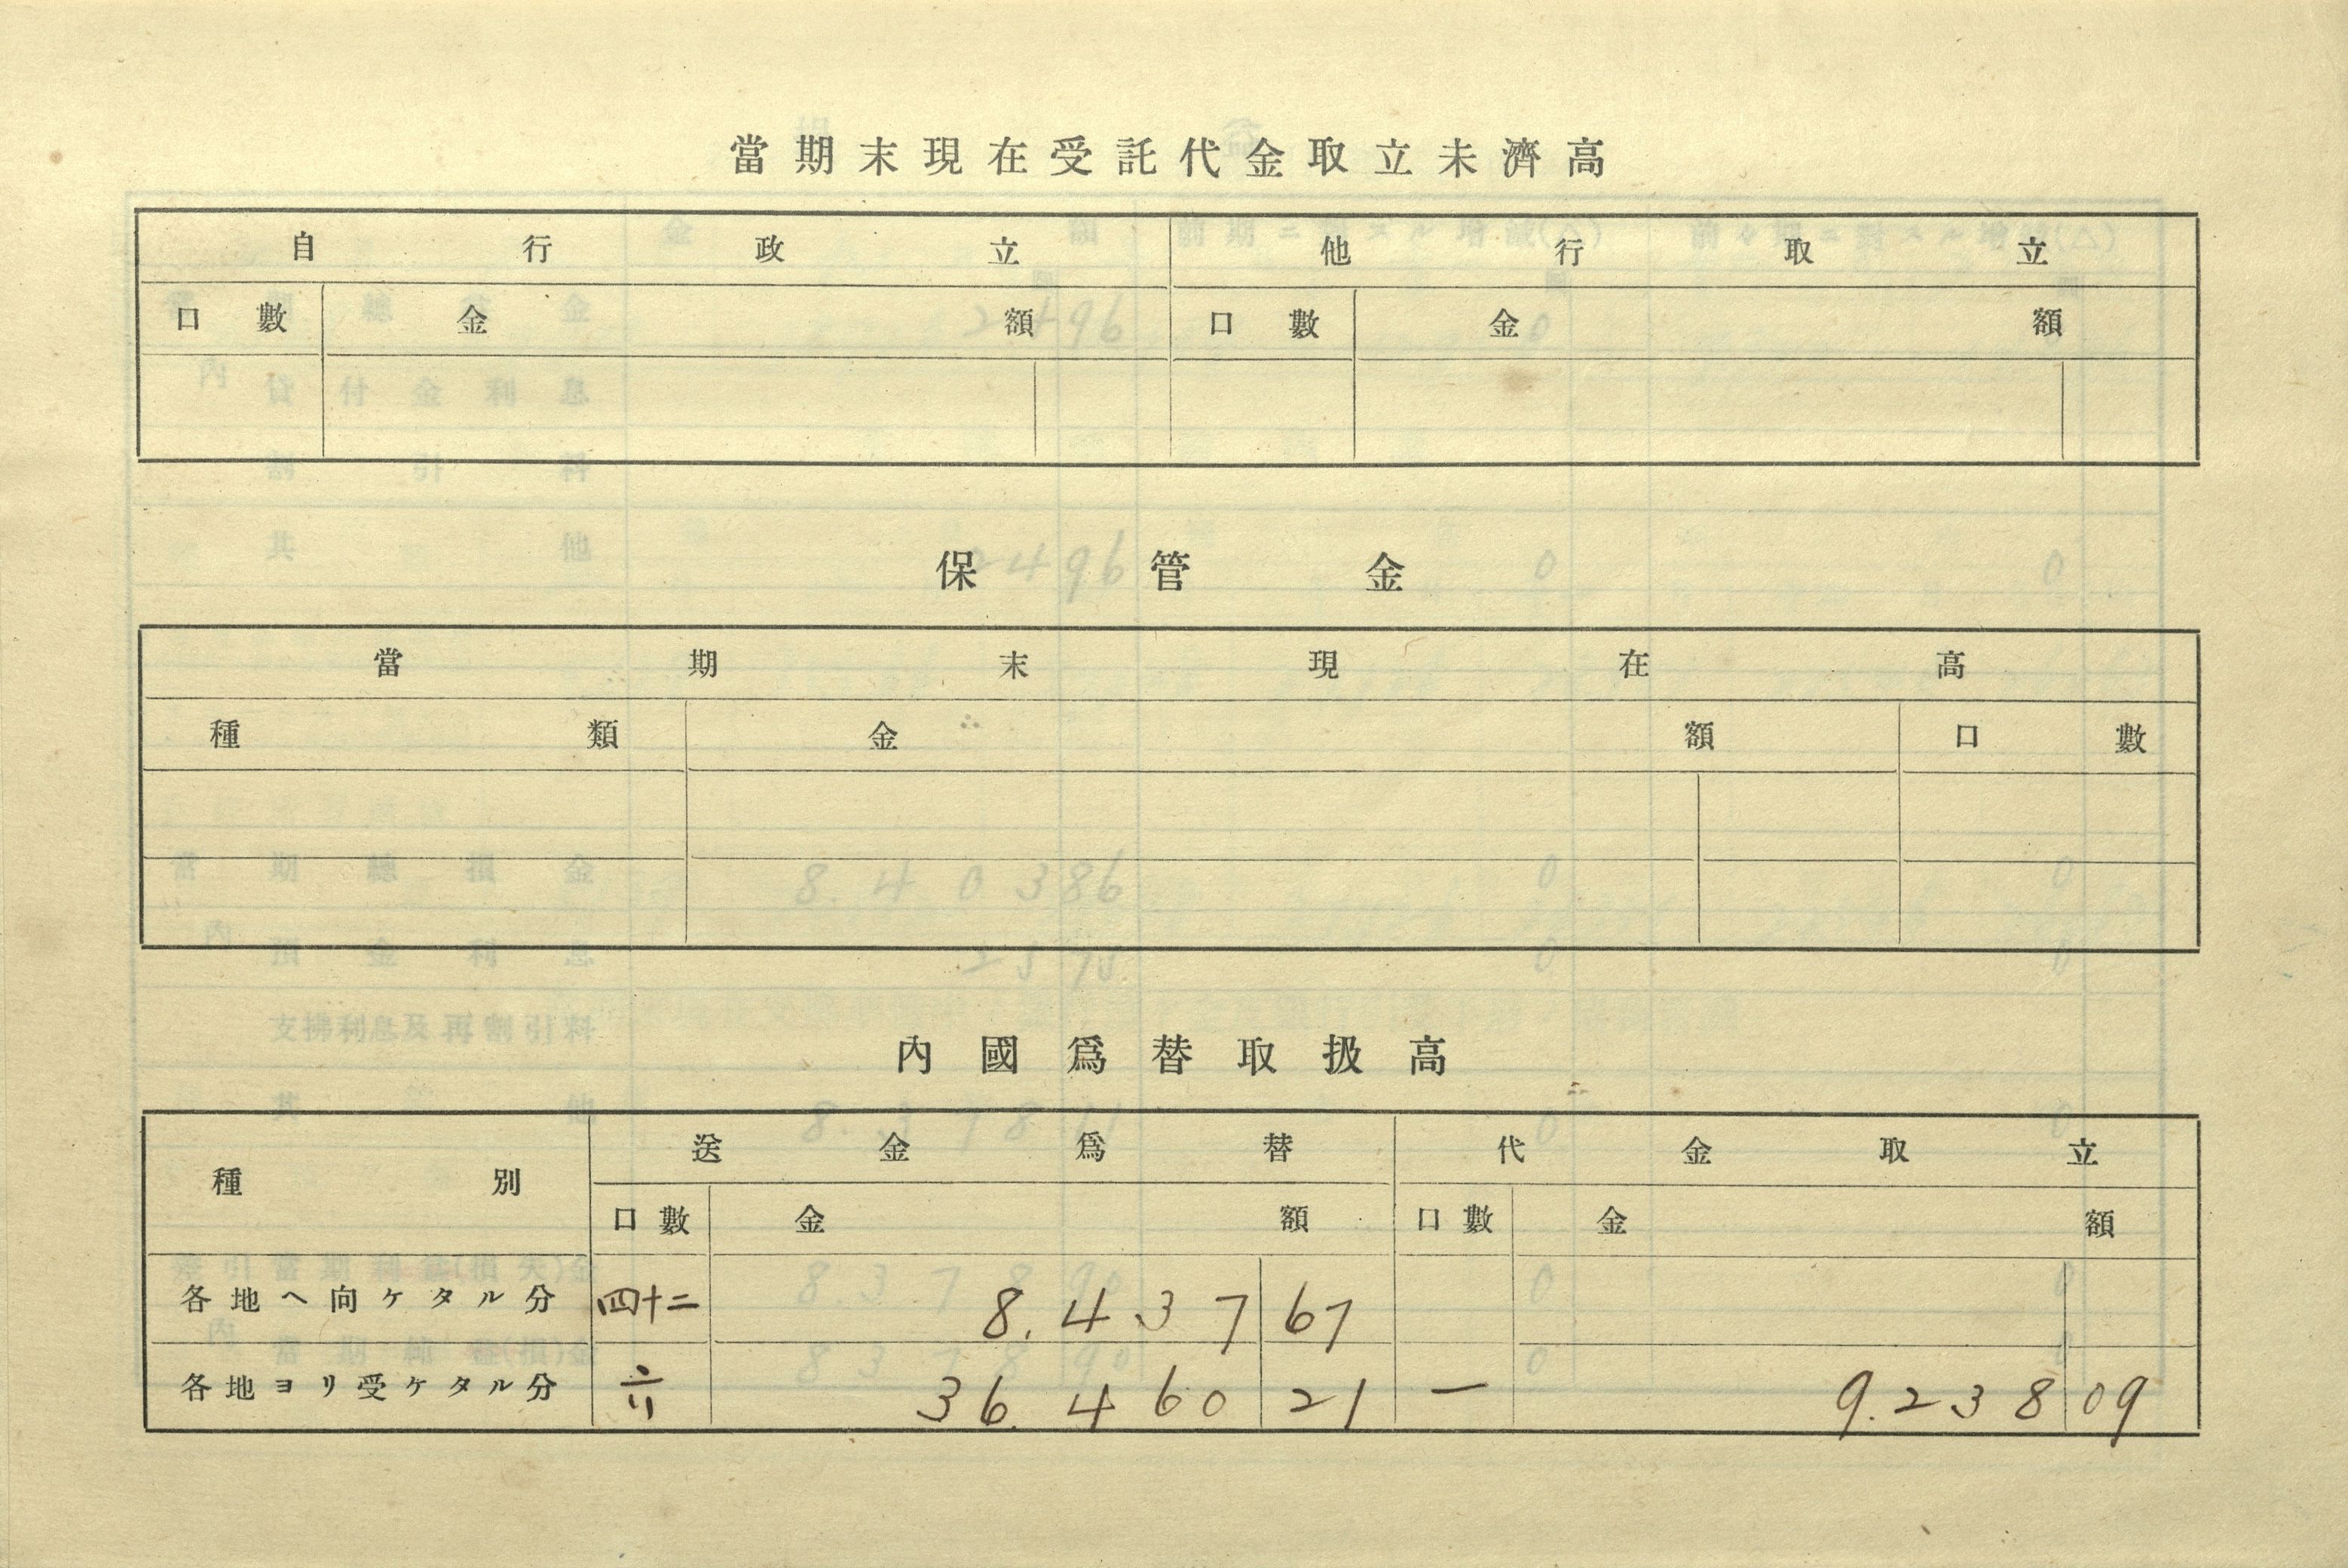 當期末現在受託代金取立未濟高
自行政立 他行取立
口數 金額 口數 金額
保管金
當期末現在高
種類 金額 口數
內國爲替取扱高
種別 送金爲替 代金取立
口數 金額 口數 金額
各地ヘ向ケタル分 四十二 8.437 67
各地ヨリ受ケタル分 36.460 21 一 9.238 09